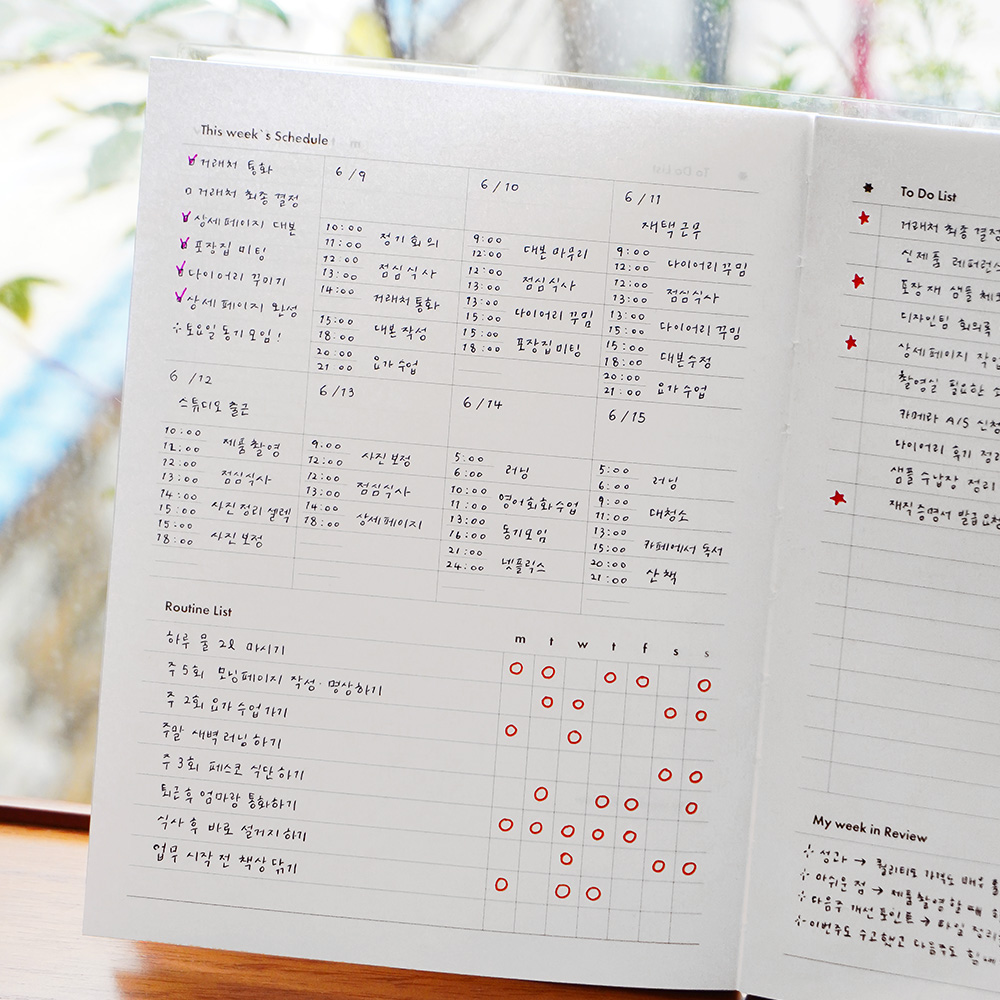 This week`s Schedule
거래처 통화
거래처 최종 결정
상세페이지 대본
포장집 미팅
다이어리 꾸미기
상세페이지 완성
토요일 동기모임!
6/9
10:00
11:00 정기회의
12:00
13:00 점심식사
14:00 거래처통화
15:00
18:00 대본작성
20:00
21:00 요가수업
6/10
9:00
12:00 대본마무리
12:00
13:00 점심식사
13:00
15:00 다이어리 꾸밈
15:00
18:00 포장집미팅
6/11
재택근무
9:00
12:00 다이어리 꾸밈
12:00
13:00 점심식사
13:00
15:00 다이어리 꾸밈
15:00
18:00 대본수정
20:00
21:00 요가수업
6/12
스튜디오 출근
10:00
12:00 제품촬영
12:00
13:00 점심식사
14:00
15:00 사진정리 셀렉
15:00
18:00 사진보정
6/13
9:00
12:00 사진보정
12:00
13:00 점심식사
14:00
18:00 상세페이지
6/14
5:00
6:00 러닝
10:00
11:00 영어회화수업
13:00
16:00 동기모임
21:00
24:00 넷플릭스
6/15
5:00
6:00 러닝
9:00
11:00 대청소
13:00
15:00 카페에서 독서
20:00
21:00 산책
Routine List
m t w t f s s
하루 물 2L 마시기
주 5회 모닝페이지 작성·명상하기
주 2회 요가수업가기
주말 새벽러닝하기
주 3회 페스코 식단하기
퇴근후 엄마랑 통화하기
식사 후 바로 설거지하기
업무 시작 전 책상 닦기
To Do List
거래처 최종 결정
신제품 레퍼런스
포장재 샘플 체크
디자인팀 회의록
상세페이지 작업
촬영실 필요한
카메라 A/S 신청
다이어리 후기 정리
샘플 수납장 정리
재직증명서 발급요청
My week in Review
성과 → 퀄리티도 가격도
아쉬운 점 → 제품촬영할때
다음주 개선 포인트 → 타임
이번주도 수고했고 다음주도 힘내